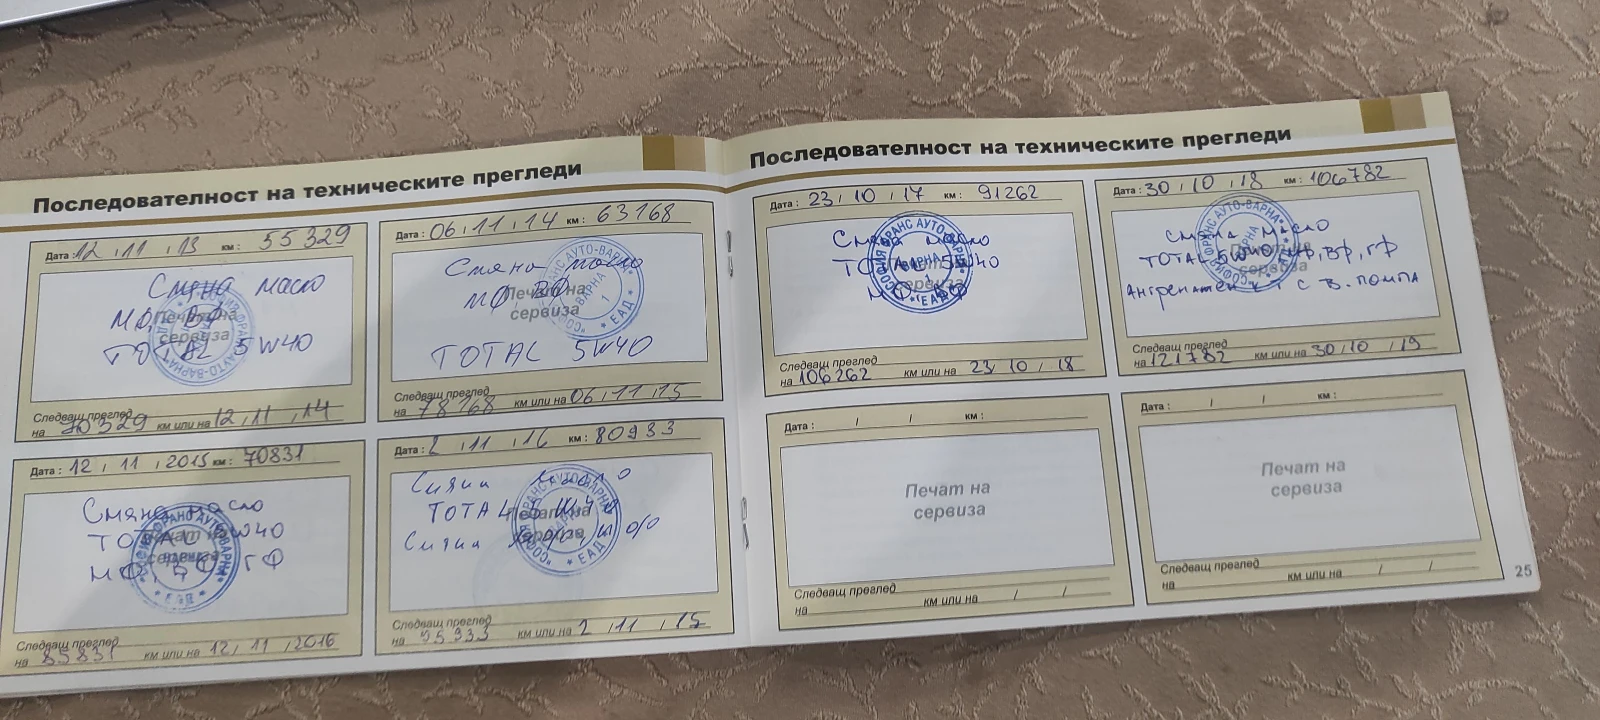 Последователност на техническите прегледи
Дата: 12 / 11 / 13 км: 55329
Смяна масло
МФ, ВФ
Печат на
сервиза
TOTAL 5W40
Следващ преглед
на 70329 км или на 12 / 11 / 14
Дата: 06 / 11 / 14 км: 63168
Смяна масло
МФ ВФ
Печат на
сервиза
TOTAL 5W40
Следващ преглед
на 78168 км или на 06 / 11 / 15
Дата: 12 / 11 / 2015 км: 70831
Смяна масло
TOTAL 5W40
Печат на
сервиза
МФ, ВФ ГФ
Следващ преглед
на 85831 км или на 12 / 11 / 2016
Дата: 2 / 11 / 16 км: 80933
масло
TOTAL 5W40
Печат на
сервиза
Следващ преглед
на 95933 км или на 2 / 11 /
Последователност на техническите прегледи
Дата: 23 / 10 / 17 км: 91262
Смяна масло
TOTAL 5W40
МФ, ВФ
СОФИЯ ФРАНС АУТО-ВАРНА
ЕАД
ВАРНА
1
Следващ преглед
на 106262 км или на 23 / 10 / 18
Дата: 30 / 10 / 18 км: 106782
Смяна масло
TOTAL 5W40, МФ, ВФ, ГФ
Ангренажен к-т с в. помпа
Следващ преглед
на 121782 км или на 30 / 10 / 19
Дата: / / км:
Печат на
сервиза
Следващ преглед
на км или на / /
Дата: / / км:
Печат на
сервиза
Следващ преглед
на км или на / /
25